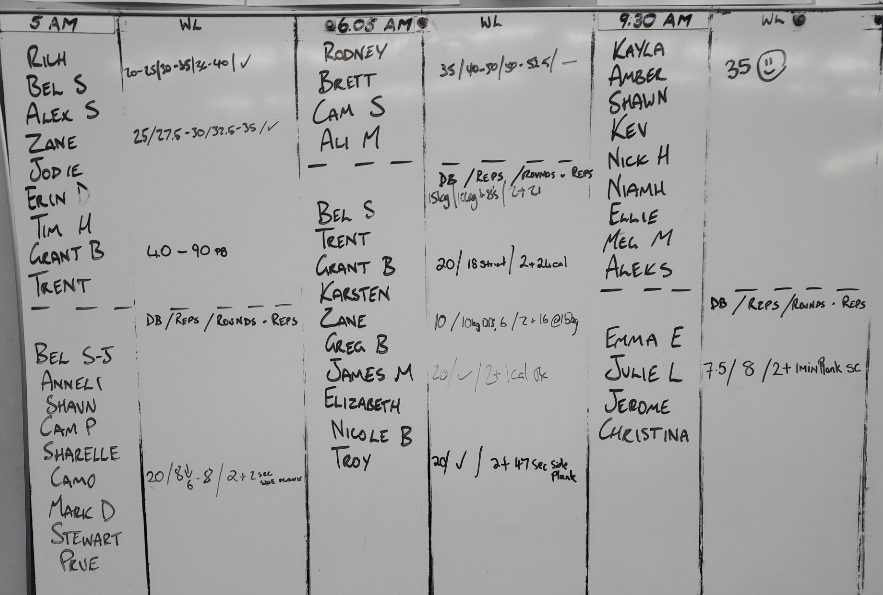 5 AM WL
RICH
20-25/30-35/36-40/✓
BEL S
ALEX S
ZANE 25/27.5-30/32.5-35/✓
JODIE
ERIN D
TIM H
GRANT B 40-90 PB
TRENT
DB/REPS/ROUNDS·REPS
BEL S-J
ANNELI
SHAUN
CAM P
SHARELLE
CAMO 20/8↓6-8/2+2 sec side plank
MARK D
STEWART
PRUE
6.05 AM WL
RODNEY
BRETT 35/40-50/50-52.5/—
CAM S
ALI M
DB/REPS/ROUNDS·REPS
BEL S 15kg/10kg 6-8's/2+21
TRENT
GRANT B 20/18 strict/2+24cal
KARSTEN
ZANE 10/10kg DB, 6/2+16@15kg
GREG B
JAMES M 20/✓/2+1cal
ELIZABETH
NICOLE B
TROY 20/✓/2+47 sec side plank
9.30 AM WL
KAYLA
AMBER 35
SHAWN
KEV
NICK H
NIAMH
ELLIE
MEG M
ALEKS
DB/REPS/ROUNDS·REPS
EMMA E
JULIE L 7.5/8/2+1min Plank SC
JEROME
CHRISTINA